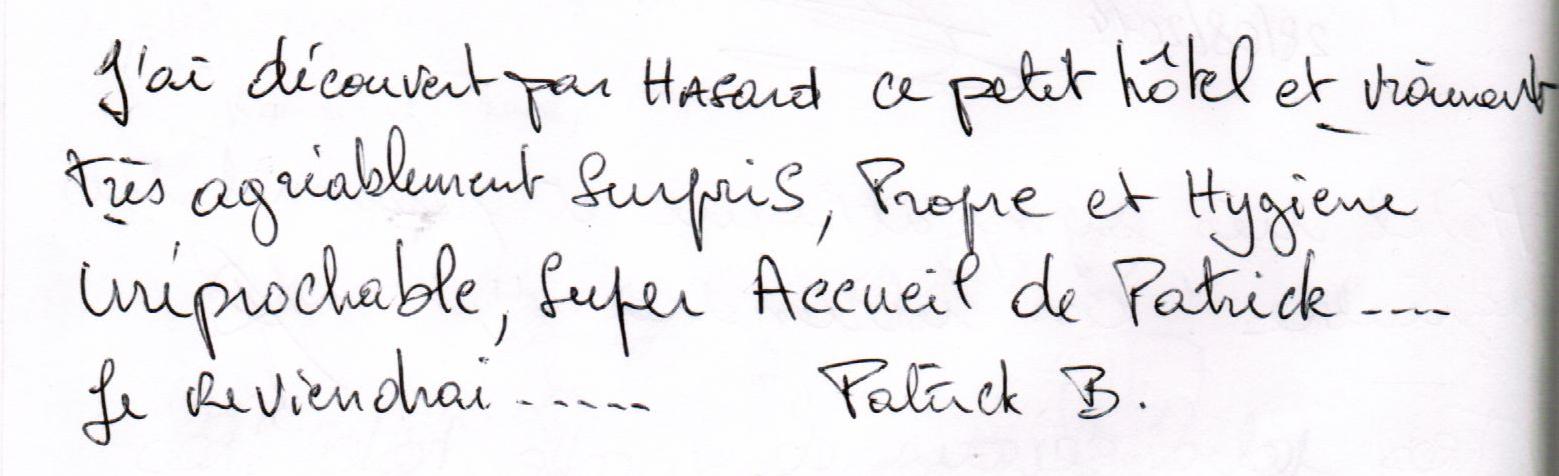 J'ai découvert par HASard ce petit hôtel et vraiment
Très agréablement Surpris, Propre et Hygiene
irréprochable, Super Accueil de Patrick ----
Je Reviendrai -----  Patrick B.